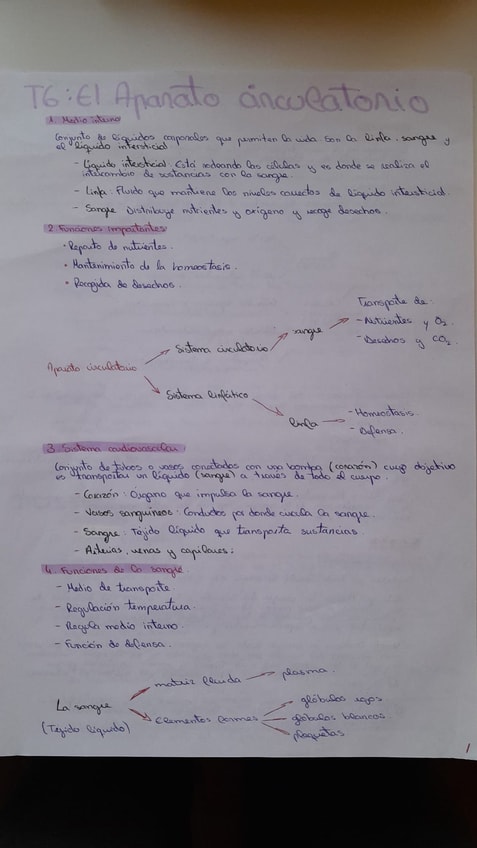 T6: El Aparato circulatorio
1. Medio interno
Conjunto de líquidos corporales que permiten la vida son la linfa, sangre y
el líquido intersticial
- Líquido intersticial: Está rodeando las células y es donde se realiza el
intercambio de sustancias con la sangre.
- Linfa: Fluido que mantiene los niveles correctos de líquido intersticial.
- Sangre Distribuye nutrientes y oxígeno y recoge desechos.
2. Funciones importantes
• Reparto de nutrientes.
• Mantenimiento de la homeostasis.
• Recogida de desechos.
Aparato circulatorio
Sistema circulatorio
sangre
Transporte de:
- Nutrientes y O2.
- Desechos y CO2.
Sistema linfático
linfa
- Homeostasis.
- Defensa.
3. Sistema cardiovascular
Conjunto de tubos o vasos conectados con una bomba (corazón) cuyo objetivo
es transportar un líquido (sangre) a través de todo el cuerpo.
- Corazón: Órgano que impulsa la sangre.
- Vasos sanguíneos: Conductos por donde circula la sangre.
- Sangre: Tejido líquido que transporta sustancias.
- Arterias, venas y capilares:
4. Funciones de la sangre
- Medio de transporte
- Regulación temperatura.
- Regula medio interno.
- Función de defensa.
La sangre
(Tejido líquido)
matriz fluida
plasma.
Elementos formes
glóbulos rojos
glóbulos blancos.
plaquetas
1